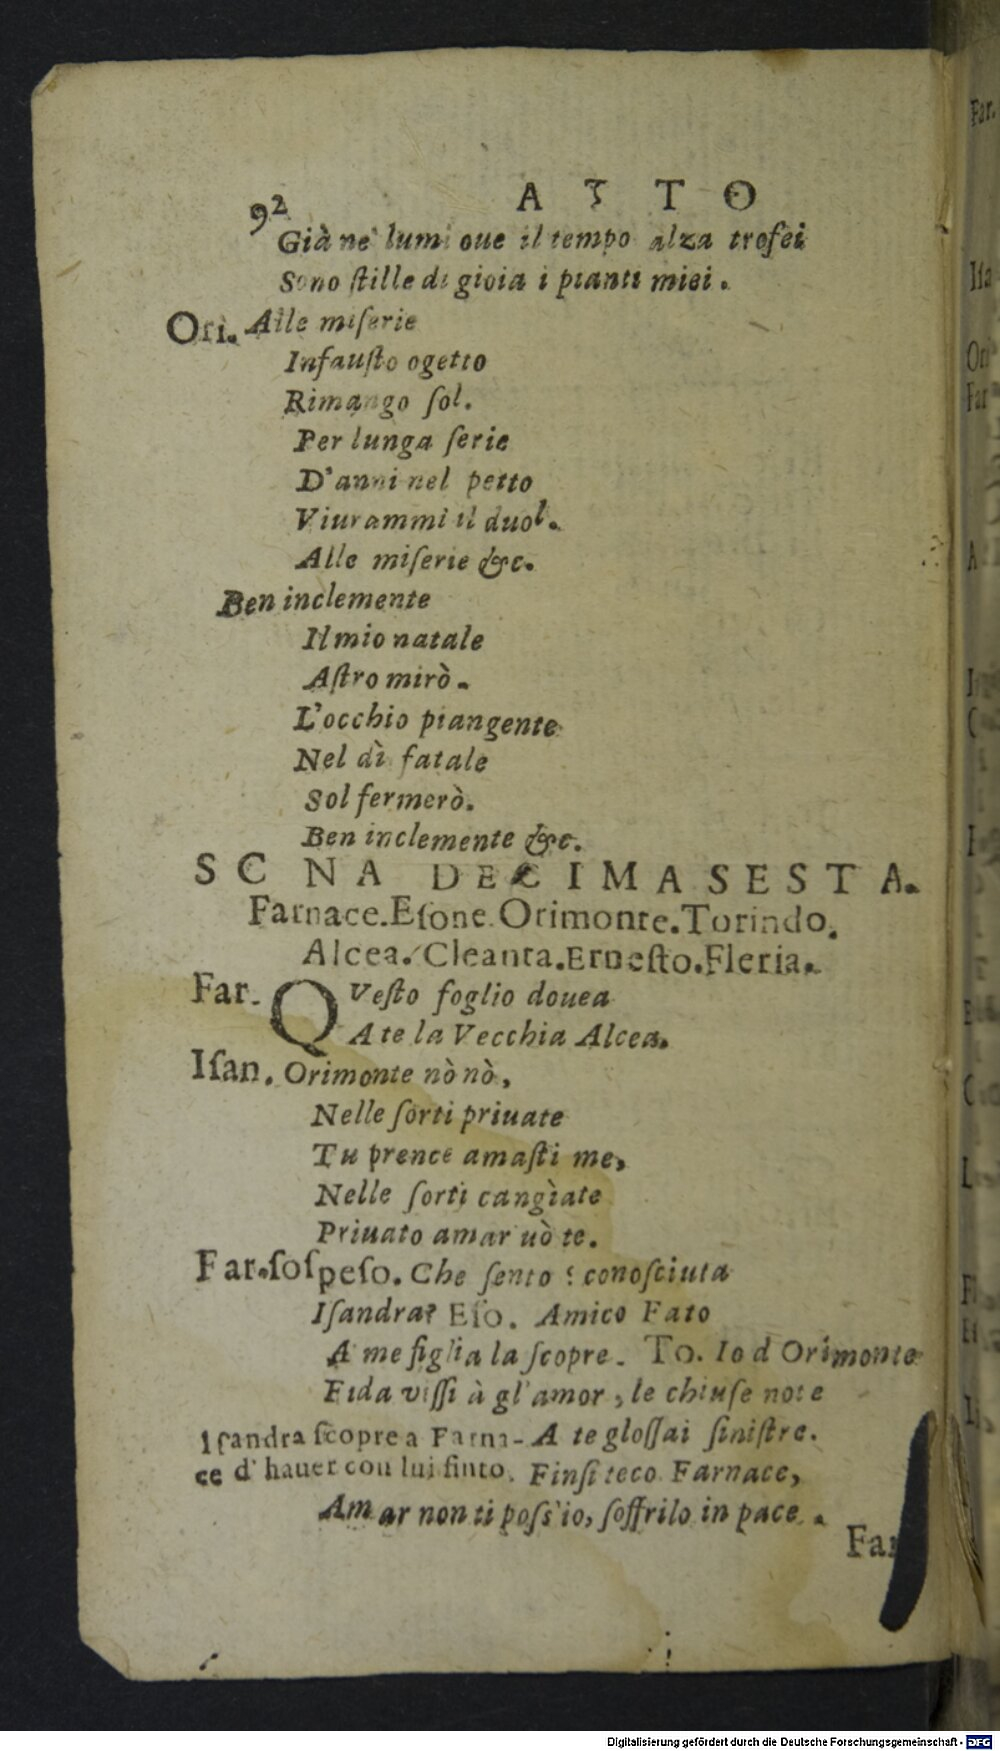 92 ATTO
Già ne' lumi oue il tempo alza trofei
Sono ſtille di gioia i pianti miei.
Ori. Alle miſerie
Infauſto ogetto
Rimango ſol.
Per lunga ſerie
D'anni nel petto
Viurammi il duol.
Alle miſerie &c.
Ben inclemente
Il mio natale
Aſtro mirò.
L'occhio piangente
Nel dì fatale
Sol fermerò.
Ben inclemente &c.
SC NA DECIMASESTA.
Farnace. Eſone. Orimonte. Torindo.
Alcea. Cleanta. Erneſto. Fleria.
Far. QVeſto foglio douea
A te la Vecchia Alcea.
Iſan. Orimonte nò nò,
Nelle ſorti priuate
Tu prence amaſti me,
Nelle ſorti cangìate
Priuato amar uò te.
Far. ſoſpeſo. Che ſento? conoſciuta
Iſandra? Eſo. Amico Fato
A me figlia la ſcopre. To. Io d Orimonte
Fida viſſi à gl'amor, le chiuſe note
Iſandra ſcopre a Farna- A te gloſſai ſiniſtre.
ce d'hauer con lui finto. Finſi teco Farnace,
Amar non ti poſs'io, ſoffrilo in pace.
Far
Digitalisierung gefördert durch die Deutsche Forschungsgemeinschaft - DFG